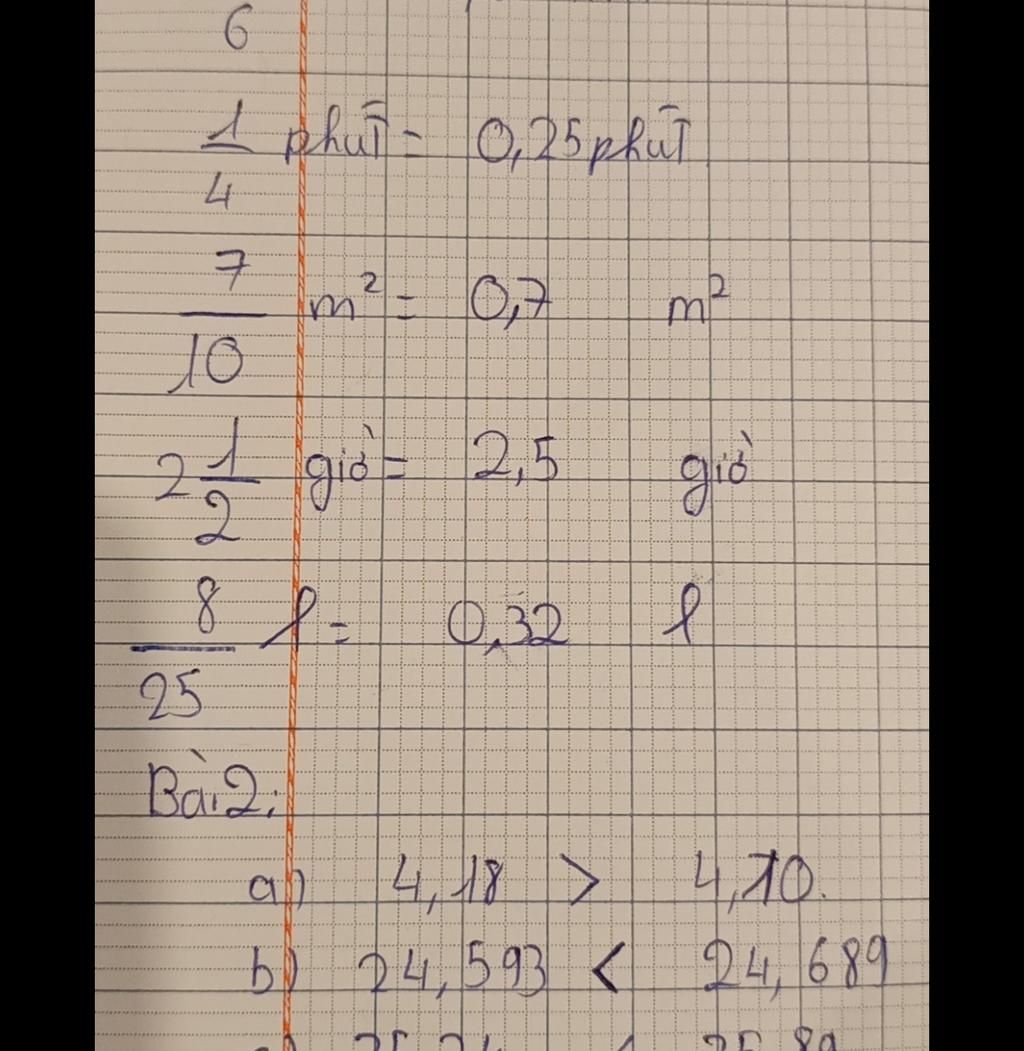 6
1/4 phút = 0,25 phút
7/10 m² = 0,7 m²
2 1/2 giờ = 2,5 giờ
8/25 l = 0,32 l
Bài 2:
a) 4,18 > 4,10.
b) 24,593 < 24,689